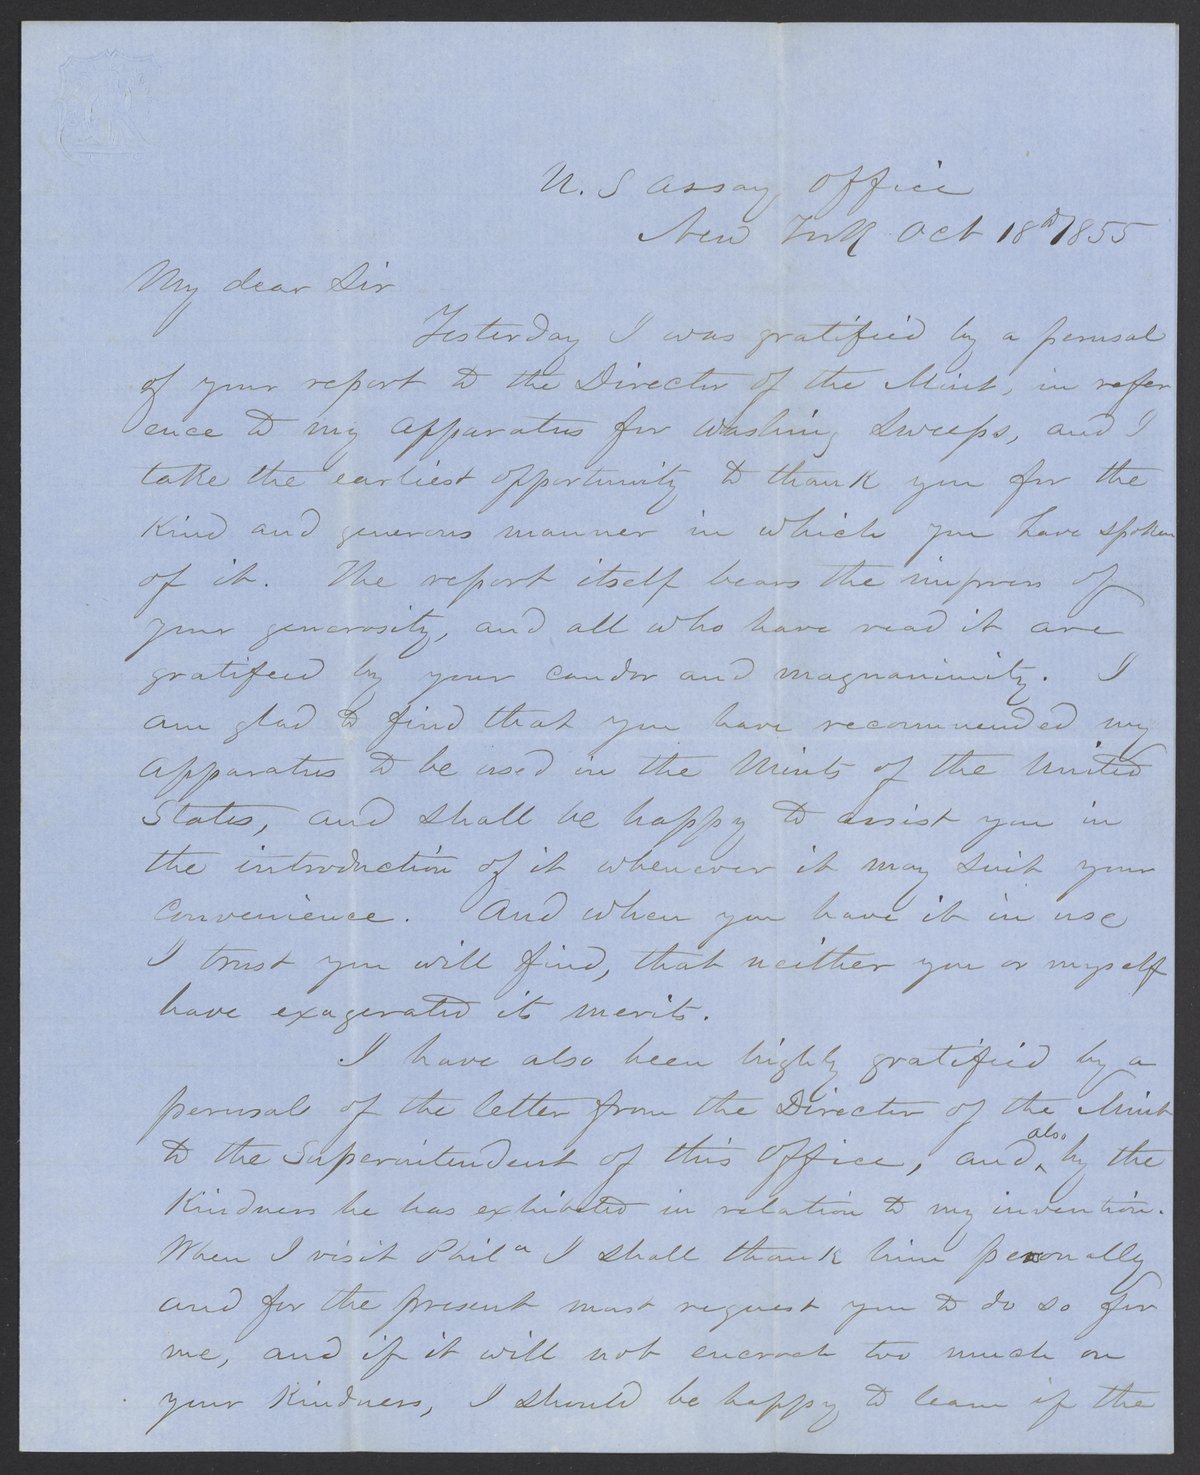 U. S Assay Office
New York Oct 18th 1855
My dear Sir
Yesterday I was gratified by a perusal
of your report to the Director of the Mint, in refer
ence to my apparatus for washing sweeps, and I
take the earliest opportunity to thank you for the
kind and generous manner in which you have spoken
of it. The report itself bears the impress of
your generosity, and all who have read it are
gratified by your candor and magnanimity. I
am glad to find that you have recommended my
apparatus to be used in the Mints of the United
States, and shall be happy to assist you in
the introduction of it whenever it may suit your
convenience. And when you have it in use
I trust you will find, that neither you or myself
have exagerated its merits.
I have also been highly gratified by a
perusal of the letter from the Director of the Mint
to the Superintendent of this Office, and also by the
kindness he has exhibited in relation to my invention.
When I visit Phila I shall thank him personally
and for the present must request you to do so for
me, and if it will not encroach too much on
your kindness, I should be happy to learn if the